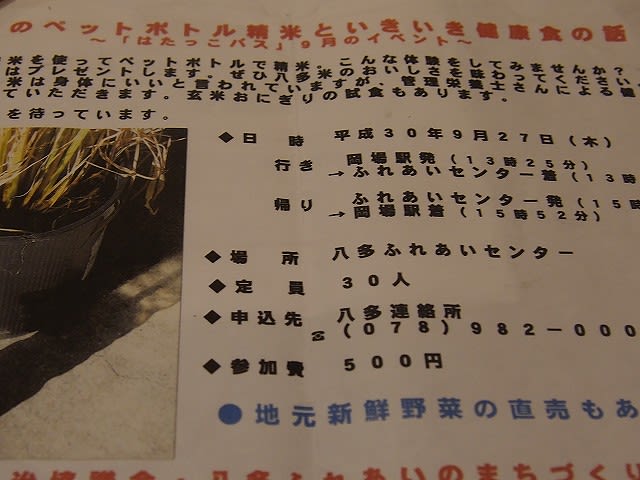 のペットボトル精米といきいき健康食の話
～「はたっこバス」9月のイベント～
米を使ってペットボトルで精米。こんな体験をしてみませんか？
はプレゼントします。ぜひ八多米のおいしさを味わってください
米は身体にいいと言われていますが、管理栄養士さんによる健
ていただきます。玄米おにぎりの試食もあります。
を待っています。
◆日 時 平成30年9月27日（木）
行き 岡場駅発（13時25分）
→ふれあいセンター着（13時
帰り ふれあいセンター発（15
→岡場駅着（15時52分）
◆場 所 八多ふれあいセンター
◆定 員 30人
◆申込先 八多連絡所
☎（078）982－000
◆参加費 500円
●地元新鮮野菜の直売もあ
八多ふれあいのまちづくり